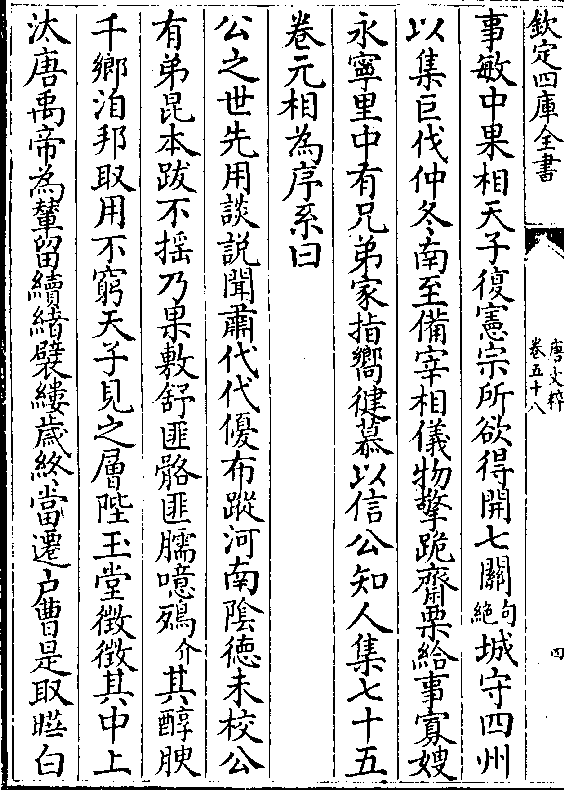 欽定四庫全書
唐文粹
卷五十八
四
事敏中果相天子復憲宗所欲得開七關絕句城守四州
以集巨伐仲冬南至備宰相儀物擎跪齋栗給事寡嫂
永寧里中有兄弟家指嚮健慕以信公知人集七十五
卷元相為序系曰
公之世先用談説聞肅代代優布蹤河南陰德未校公
有弟昆本跋不搖乃果敷舒匪骼匪臑噫殤介其醇腴
千鄉洎邦取用不窮天子見之層陛玉堂徴徴其中上
汰唐禹帝為輦留續緒襞縷歳終當遷户曹是取䠶白